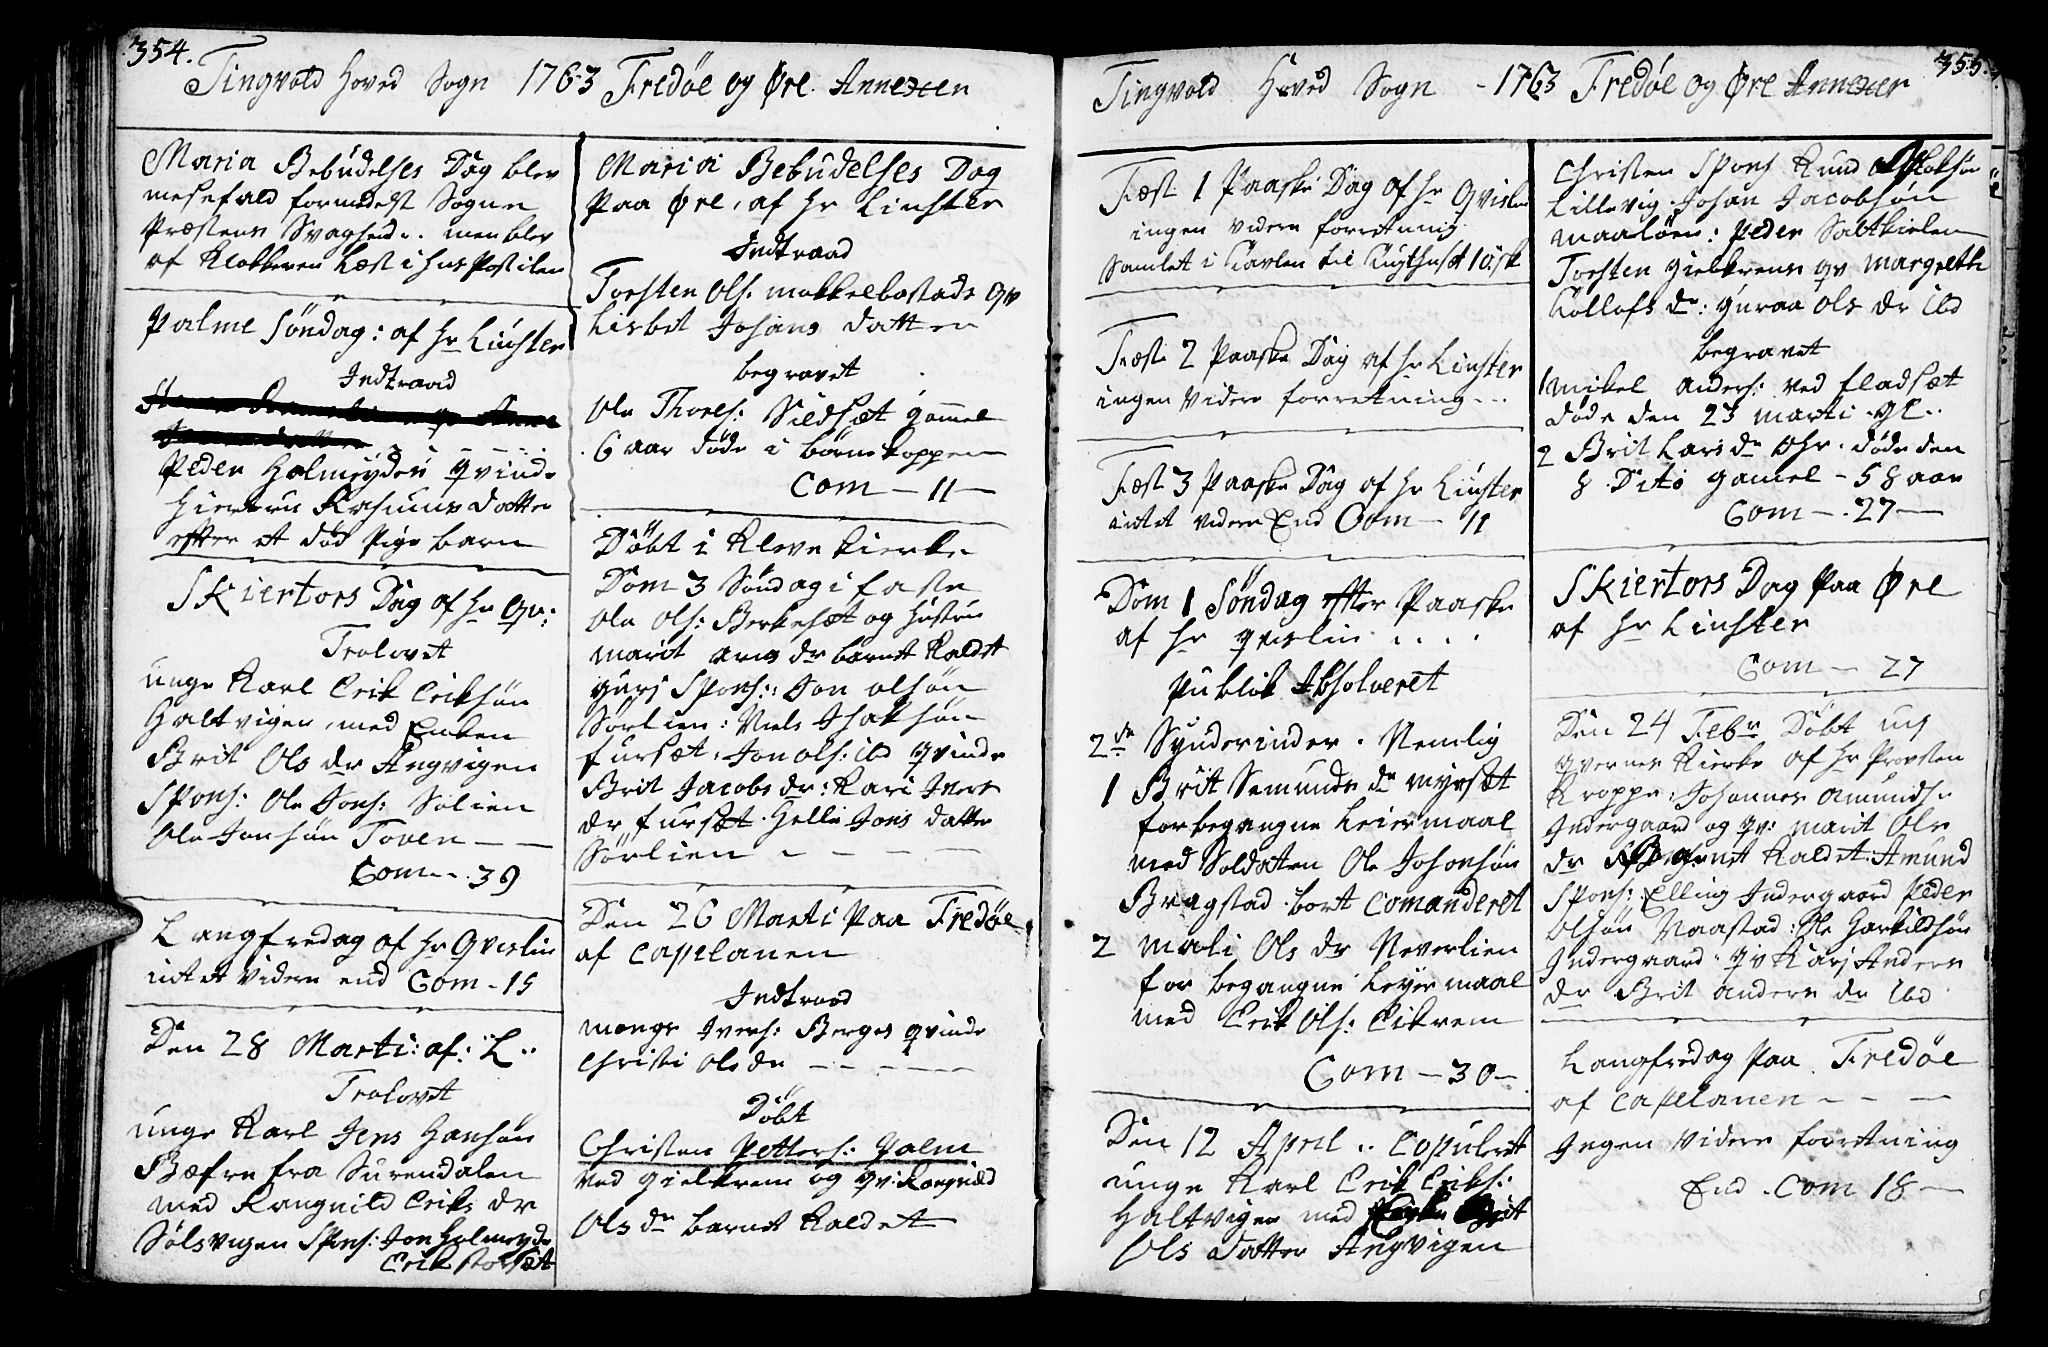 354.
Tingvold Hoved Sogn 1763 Fredøe og Øre Annexen
Maria Bebudelses Dag blev
mesefald formedelst Sogne
Præstens Svaghed. men blev
af Klokkeren Læst i hus Postilen
Palme Søndag: af Hr Linster
Indtraad
Peder Holmeyder Qvinde
Rasmus Datter
efter et død Pige barn
Skiertors Dag af Hr Qv:
Trolovet
unge Karl Erik Erikssøn
Haltvigen, med Enken
Brit Ols dr Angvigen
Spons: Ole Jons: Solien
Ole Jonssøn Toven
Com - 39
Langfredag af Hr Qvislin
intet videre end Com - 15
Den 28 Marti: af: L..
Trolovet
unge Karl Jens Hanssøn
Bæfre fra Surendalen
med Rangnild Eriks dr
Sølsvigen Spons: Jon Holmeyde
Erik
Maria Bebudelses Dag
Paa Øre, af Hr Linster
Indtraad
Torsten Ols: mokkelbostads Qv
Lisbet Johans datter
begravet
Ole Thores: Sildsæt gamel
6 aar døde i børnekopper
Com - 11 -
Døbt i Kleve Kierke
Dom 3 Søndag i faste
Ole Ols: Berkesæt og hustru
marit Arns dr barnet Kaldet
gurj Spons: Jon olsøn
Sørlien: Niels Isaksøn
fursæt. Jon ols: ibd Qvinde
Brit Jacobs dr: Kari Ivers
dr fursæt. Helle Jons datter
Sørlien
Den 26 Marti Paa Fredøe
af Capelanen
Indtraad
monge Ivers: Berges qvinde
Christi Olsdr
Døbt
Christen Petters: Palm
ved gielkrem og qv: Rangnild
Ols dr barnet Kaldet
355.
Tingvold Hoved Sogn - 1763 Fredøe og Øre Annexer
Fæst 1 Paaske Dag af Hr Qvislin
ingen videre forretning
Samlet i Tavlen til Tugthuset 10 sk
Fæst 2 Paaske Dag af Hr Linster
ingen videre forretning...
Fæst 3 Paaske Dag af Hr Linster
intet videre End Com - 11
Dom 1 Søndag efter Paaske
af Hr qvislin....
Publik Absolveret
2de Synderinder. Nemlig
1 Brit Semunds dr myrsæt
forbegangne Leiermaal
med Soldaten Ole Johonsøn
Bragstad. bort Comanderet
2 mali Ols dr Neverlien
for begangne Leyermaal
med Erik Ols: Eikrem
Com - 30 -
Den 12 April.. Copuleret
unge Karl Erik Eriks:
Haltvigen med Brit
Ols datter Angvigen
Christen Spons Knud
Lillevig. Johan Jacobsøn
maaløen: Peder Saltkielen
Torsten gielkrems qv margreth
Tollofs dr: guraa Ols dr ibd
begravet
1 mikel Anders: ved fladsæt
døde den 23 marti
2 Brit Lars dr døde den
8 Dito gamel - 58 aar
Com - 27 -
Skiertors Dag Paa Øre
af Hr Linster
Com - 27
Den 24 Febr Døbt udj
qvernes Kierke af Hr Provsten
Kroppe. Johannes Amunds:
Indergaard og qv: marit Ols
dr barnet Kaldet: Amund
Spons: Elling Indergaard Peder
Olsøn Vaastad: Ole
Indergaard. qv Karj Anders
dr Brit Anders dr ibd
Langfredag Paa Fredøe
af Capelanen
Ingen videre forretning
End. Com 18 -